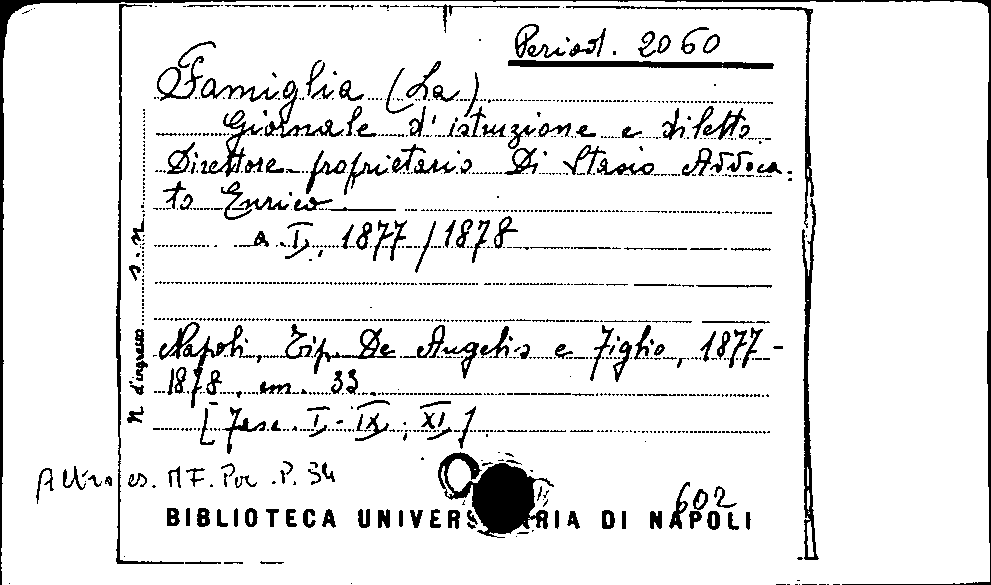 Period. 2060
Famiglia (La)
Giornale d'istruzione e diletto
Direttore proprietario Di Stasio Avvoca-
to Enrico.
a. I, 1877/1878
Napoli, Tip. De Angelis e Figlio, 1877-
1878, cm. 33.
[Fasc. I-IX; XI]
N d'ingresso s.n.
Altro es. MF. Per. P. 34
602
BIBLIOTECA UNIVERS RIA DI NAPOLI